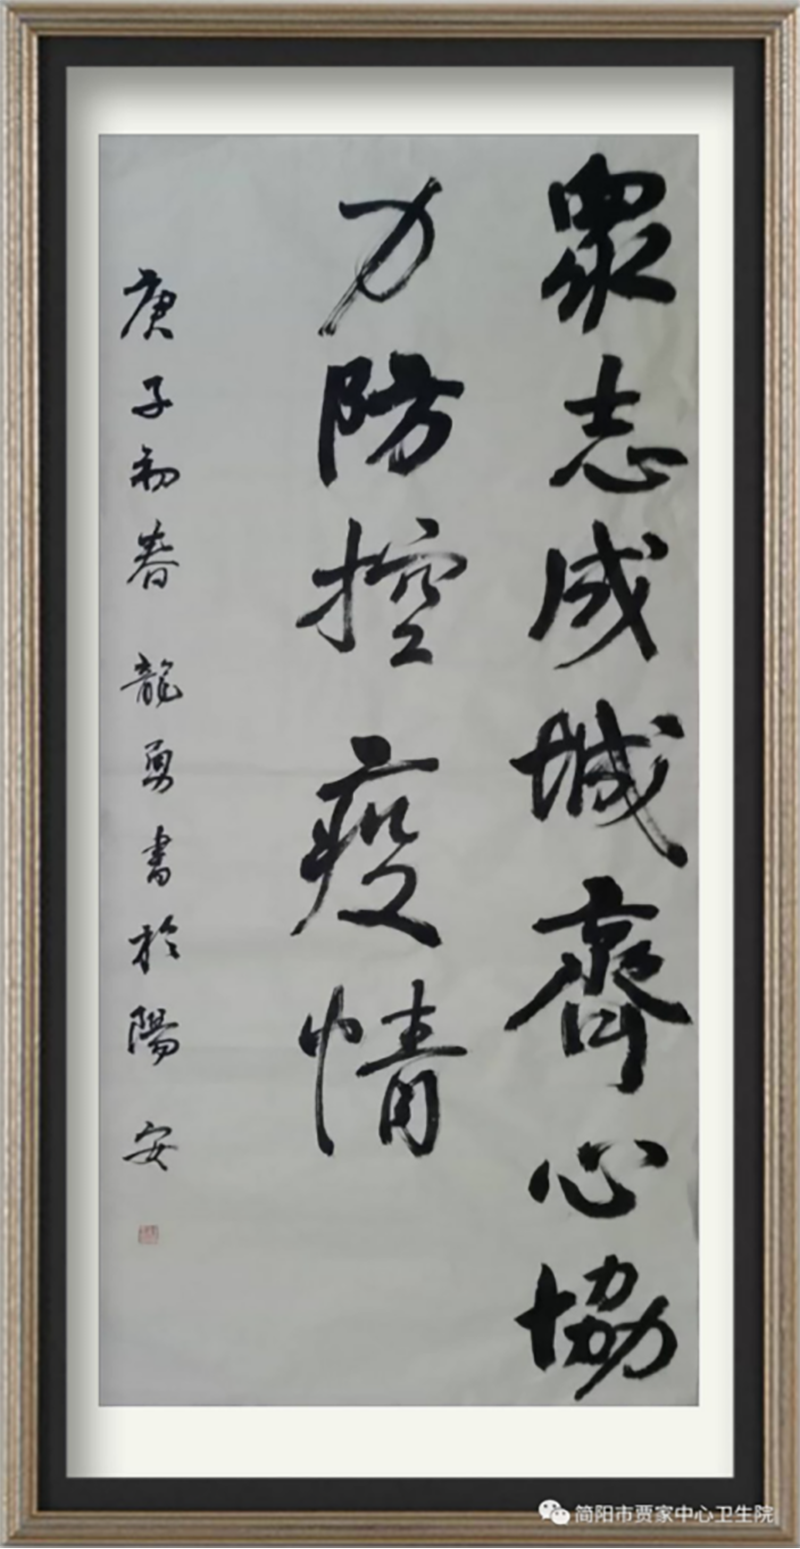 眾志成城齊心協
力防控疫情
庚子初春 龍勇書於陽安
简阳市贾家中心卫生院